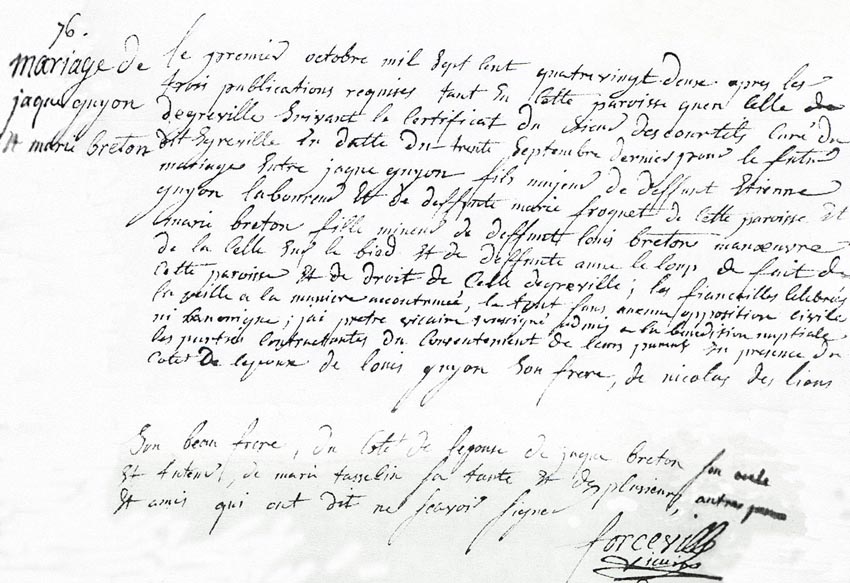 76.
mariage de
jaque guyon
et marie breton
le premier octobre mil sept cent quatrevingt deux apres les
trois publications requises tant en cette paroisse quen celle de
degreville suivant le certificat du sieur descourtils curé du
dit Egreville en datte du trente septembre dernier pour le futur
mariage entre jaque guyon fils majeur de deffunt Etienne
guyon laboureur et de deffunte marie froquet de cette paroisse et
marie breton fille mineur de deffunt louis breton manœuvre
de la Celle sur le bied et de deffunte anne le loup de fait de
cette paroisse et de droit de celle degreville; les fiancailles celebrées
la veille a la maniere accoutumée, le tout sans aucune opposition civile
ni canonique; j'ai pretre vicaire soussigné admis a la benediction nuptiale
les parties contractantes du consentement de leurs parents en presence du
coté De lepoux de louis guyon son frere, de nicolas des lions
son beau frere, du coté de lepouse de jaque breton son oncle
et tuteur, de marie tasselin sa tante et de plusieurs autres parens
et amis qui ont dit ne scavoir signer
forceville
vicaire